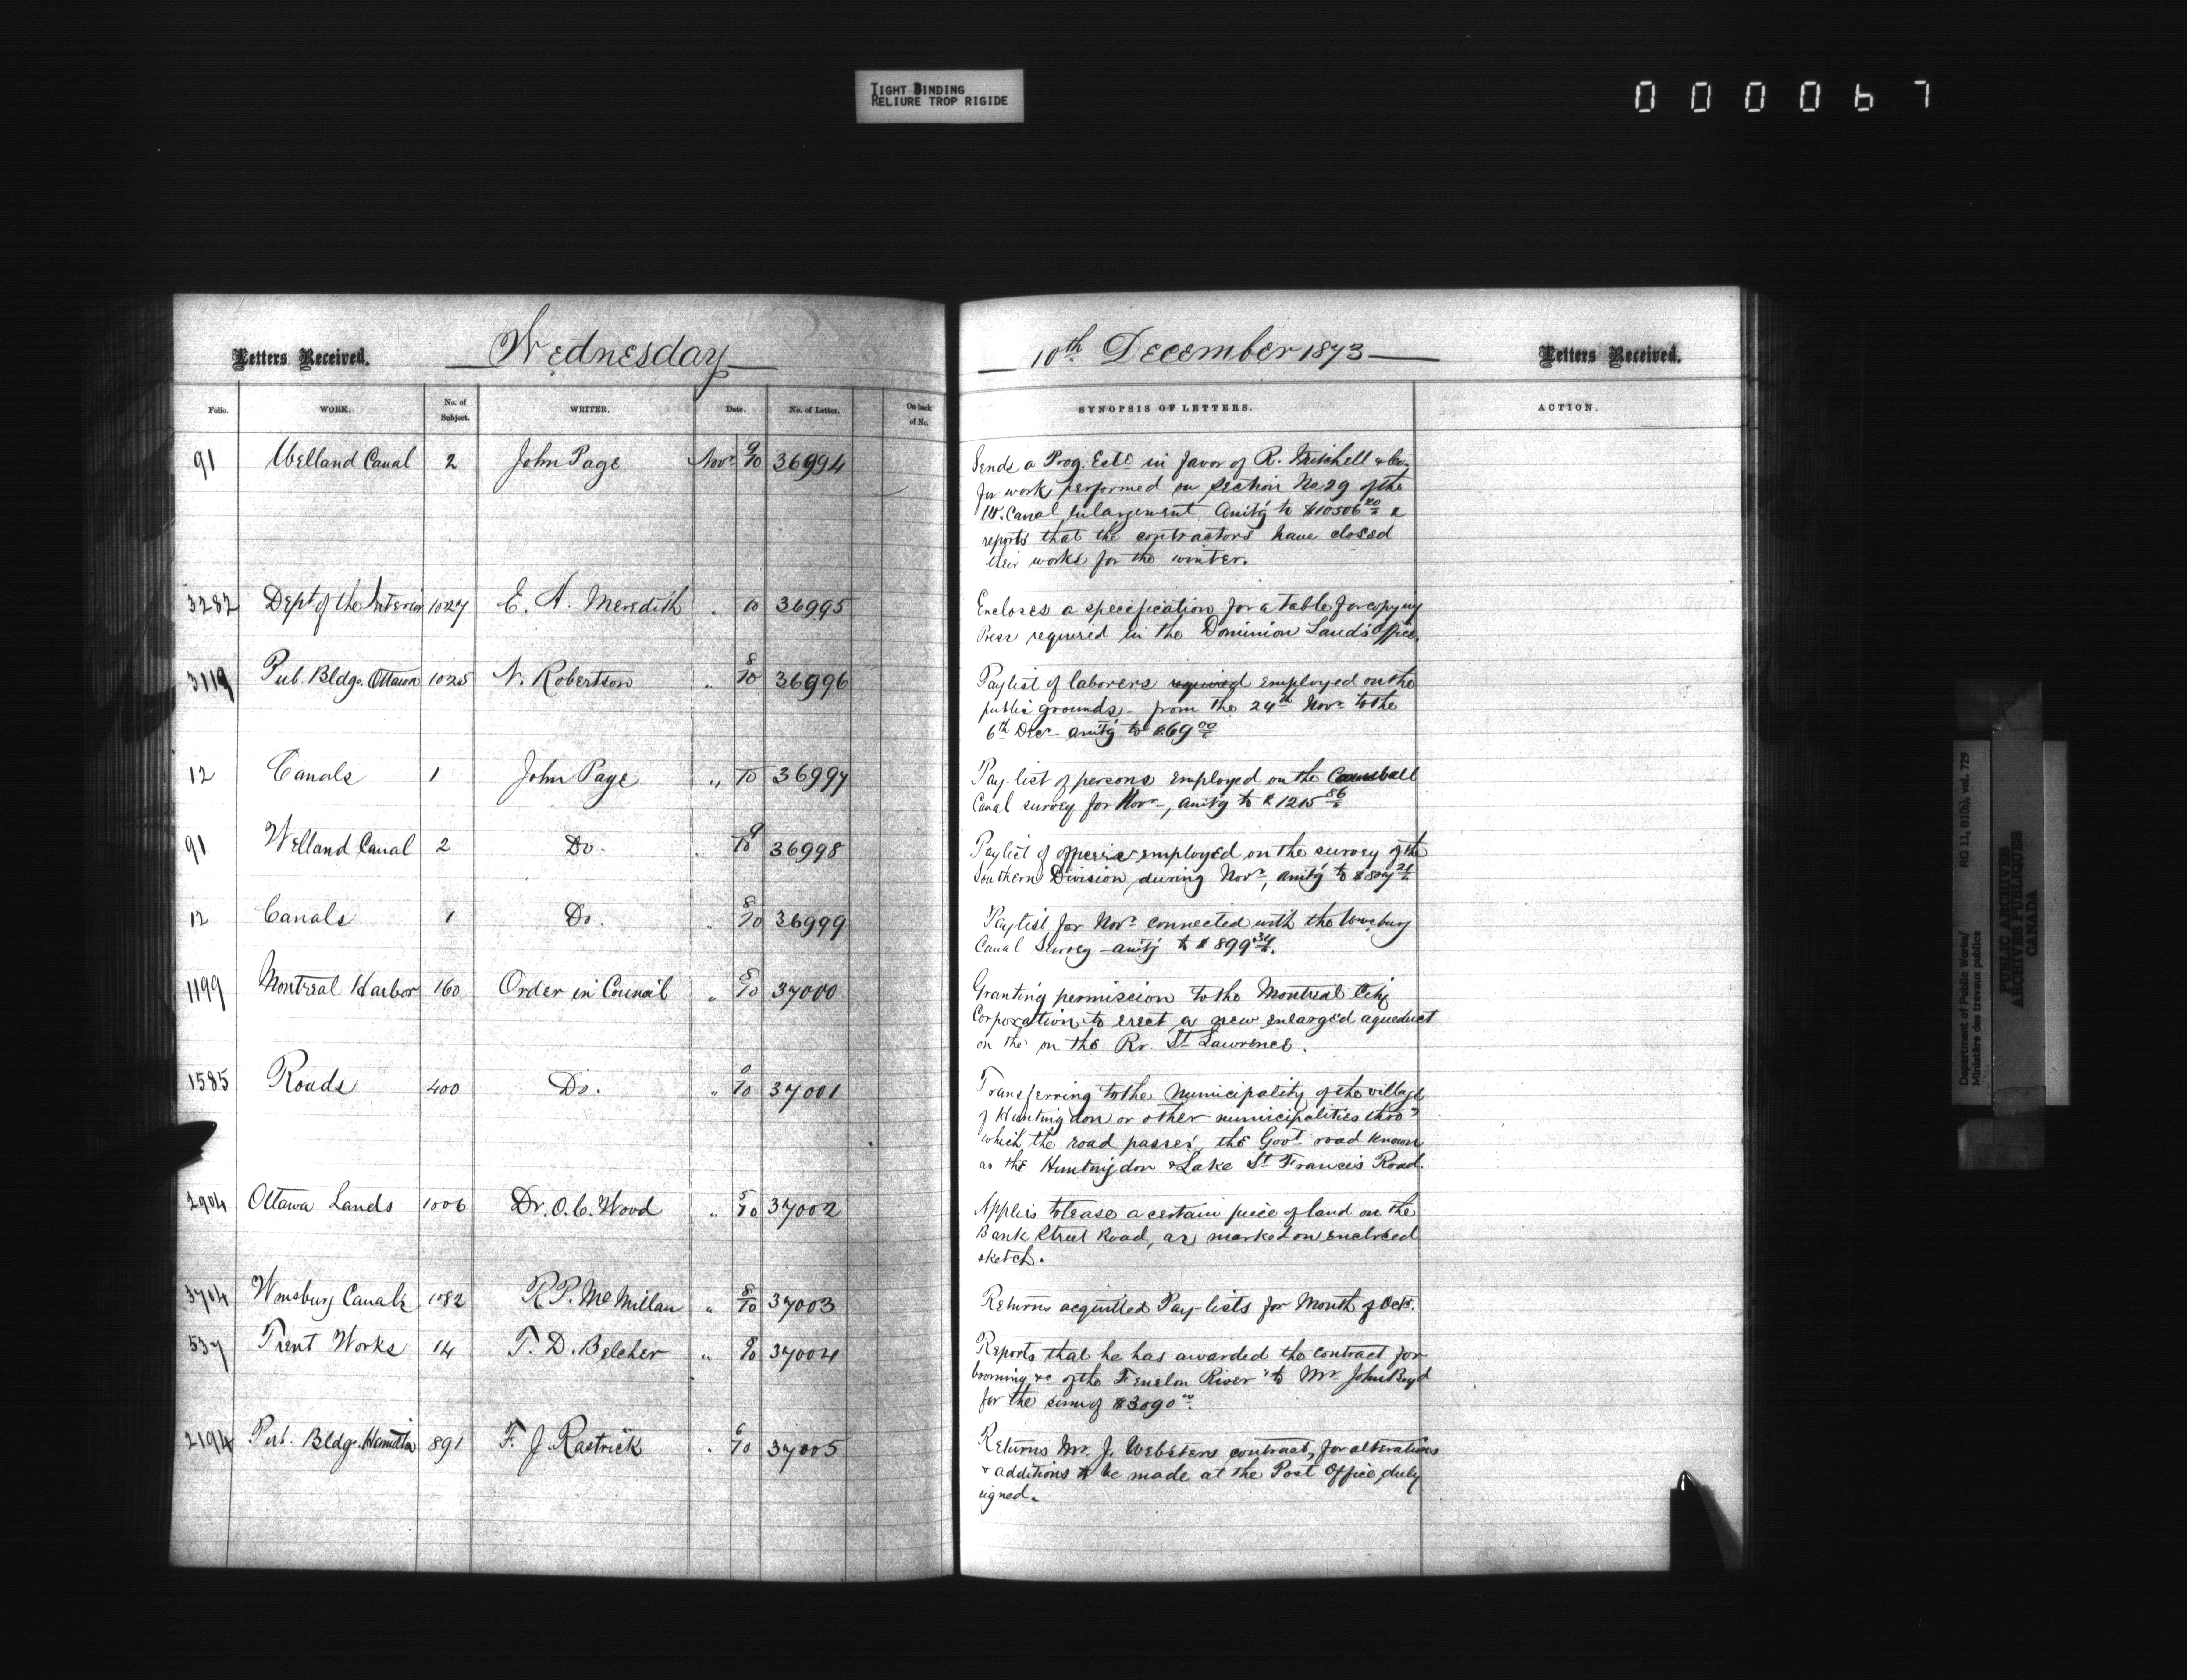 TIGHT BINDING
RELIURE TROP RIGIDE
000067
Letters Received. Wednesday
Folio. WORK. No. of Subject. WRITER. Date. No. of Letter. On back of No.
91 Welland Canal 2 John Page Novr 9/10 36994
3282 Dept of the Interior 1027 E. A. Meredith " 10 36995
3119 Pub. Bldgs. Ottawa 1025 N. Robertson " 8/10 36996
12 Canals 1 John Page " 10 36997
91 Welland Canal 2 Do. " 9/10 36998
12 Canals 1 Do. " 8/10 36999
1199 Montreal Harbor 160 Order in Council " 8/10 37000
1585 Roads 400 Do. " 10 37001
2904 Ottawa Lands 1006 Dr. O. C. Wood " 5/10 37002
3704 Wmsburg Canals 1082 R P. McMillan " 8/10 37003
537 Trent Works 14 T. D. Belcher " 37004
2194 Pub. Bldgs. Hamilton 891 F. J. Rastrick " 6/10 37005
10th December 1873 Letters Received.
SYNOPSIS OF LETTERS. ACTION.
Sends a Prog. Este in favor of R. Mitchell & Co.
for work performed on Section No 29 of the
W. Canal Enlargement. Amtg to $10506 &
reports that the contractors have closed
their works for the winter.
Encloses a specification for a table for copying
Press required in the Dominion Lands Office.
Paylist of laborers required employed on the
public grounds from the 24th Novr to the
6th Decr amtg to $69 00
Pay-list of persons employed on the
Canal survey for Novr, amtg to $1215 86
Paylist of employed on the survey of the
Southern Division during Novr, amtg to
Paylist for Novr connected with the Wmsburg
Canal Survey - amtg to $899 34.
Granting permission to the Montreal City
Corporation to erect a new enlarged aqueduct
on the on the Rr. St Lawrence.
Transferring to the Municipality of the village
of Huntingdon or other municipalities thro'
which the road passes, the Govt road known
as the Huntingdon & Lake St Francis Road.
Applies to lease a certain piece of land on the
Bank Street Road, as marked on enclosed
sketch.
Returns acquitted Pay-lists for Month of Octr.
Reports that he has awarded the contract for
booming &c of the Fenelon River to Mr. John Boyd
for the sum of $3090 00.
Returns Mr. J. Websters contract, for alterations
& additions to be made at the Post Office, duly
signed.
Department of Public Works/ RG 11, B1(b), vol. 729
Ministère des travaux publics
PUBLIC ARCHIVES
ARCHIVES PUBLIQUES
CANADA